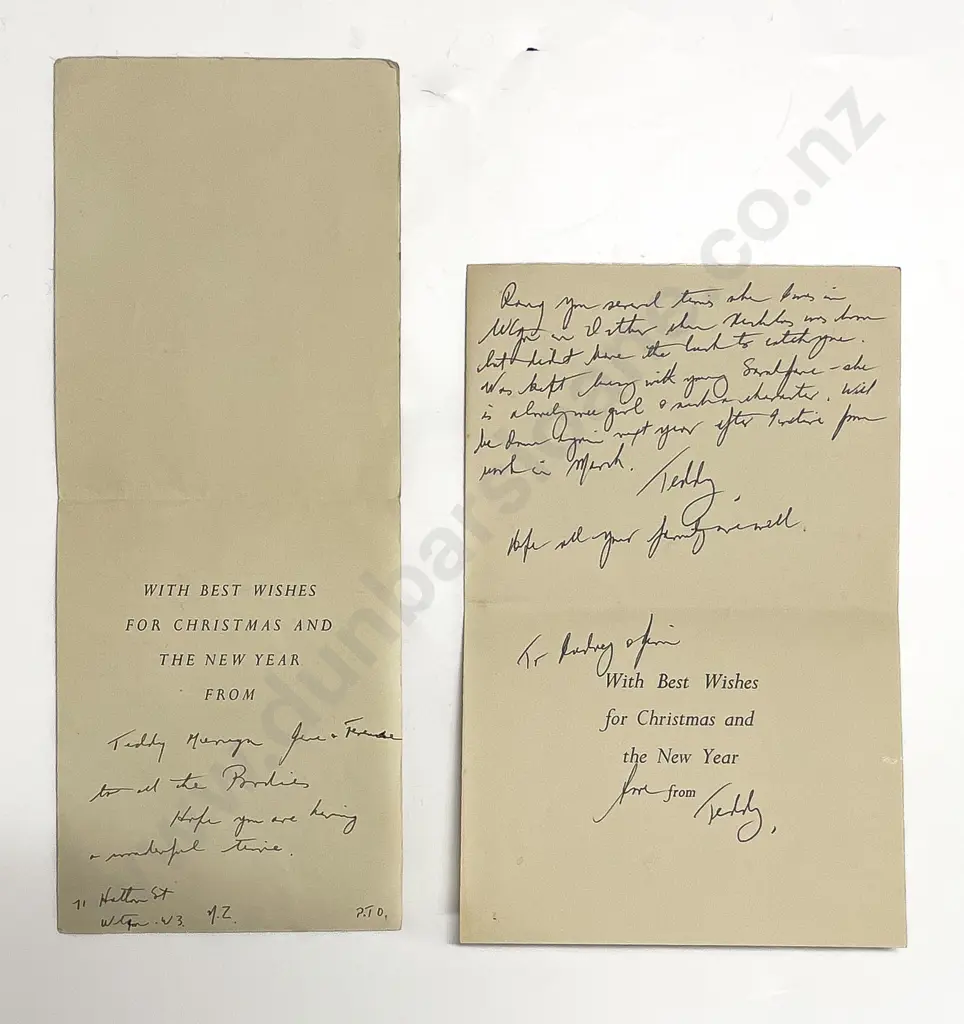 WITH BEST WISHES
FOR CHRISTMAS AND
THE NEW YEAR
FROM
Teddy Jane & Terence
to all the Brodies
Hope you are having
a wonderful time.
71 Hatton St
Wgtn. W3. N.Z.
P.T.O.
Rang you several times when I was in
Wgtn in when Nicholas was born
but didn't have the luck to catch you.
Was kept busy with young Sarah Jane - she
is a lovely wee girl & such a character. Will
be down again next year after I retire from
work in March.
Teddy.
Hope all your family are well.
To Rodney &
With Best Wishes
for Christmas and
the New Year
love from Teddy.
www.dunbarsloane.co.nz